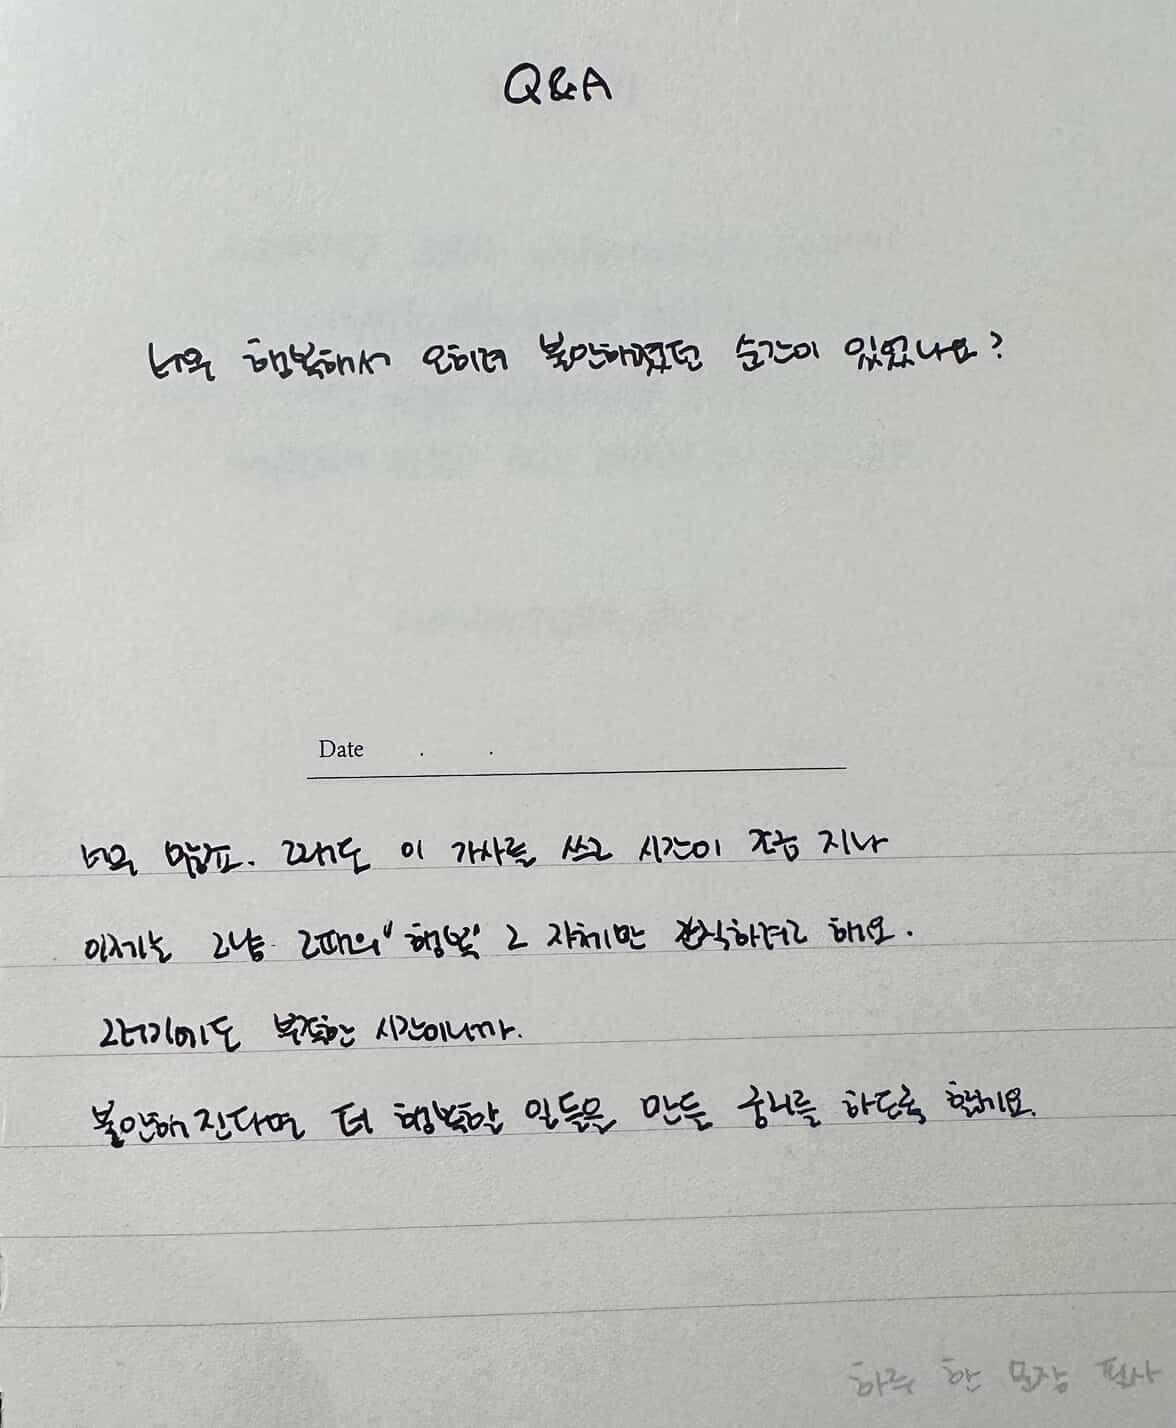 Q&A
너무 행복해서 오히려 불안하셨던 순간이 있었나요?
Date . .
너무 많죠. 그래도 이 가사를 쓰고 시간이 조금 지나
이제는 그냥 그때의 "행복" 그 자체만 간직하려고 해요.
그러기에도 부족한 시간이니까.
불안해 진다면 더 행복할 일들을 만들 궁리를 하도록 할게요.
하루 한 문장 필사